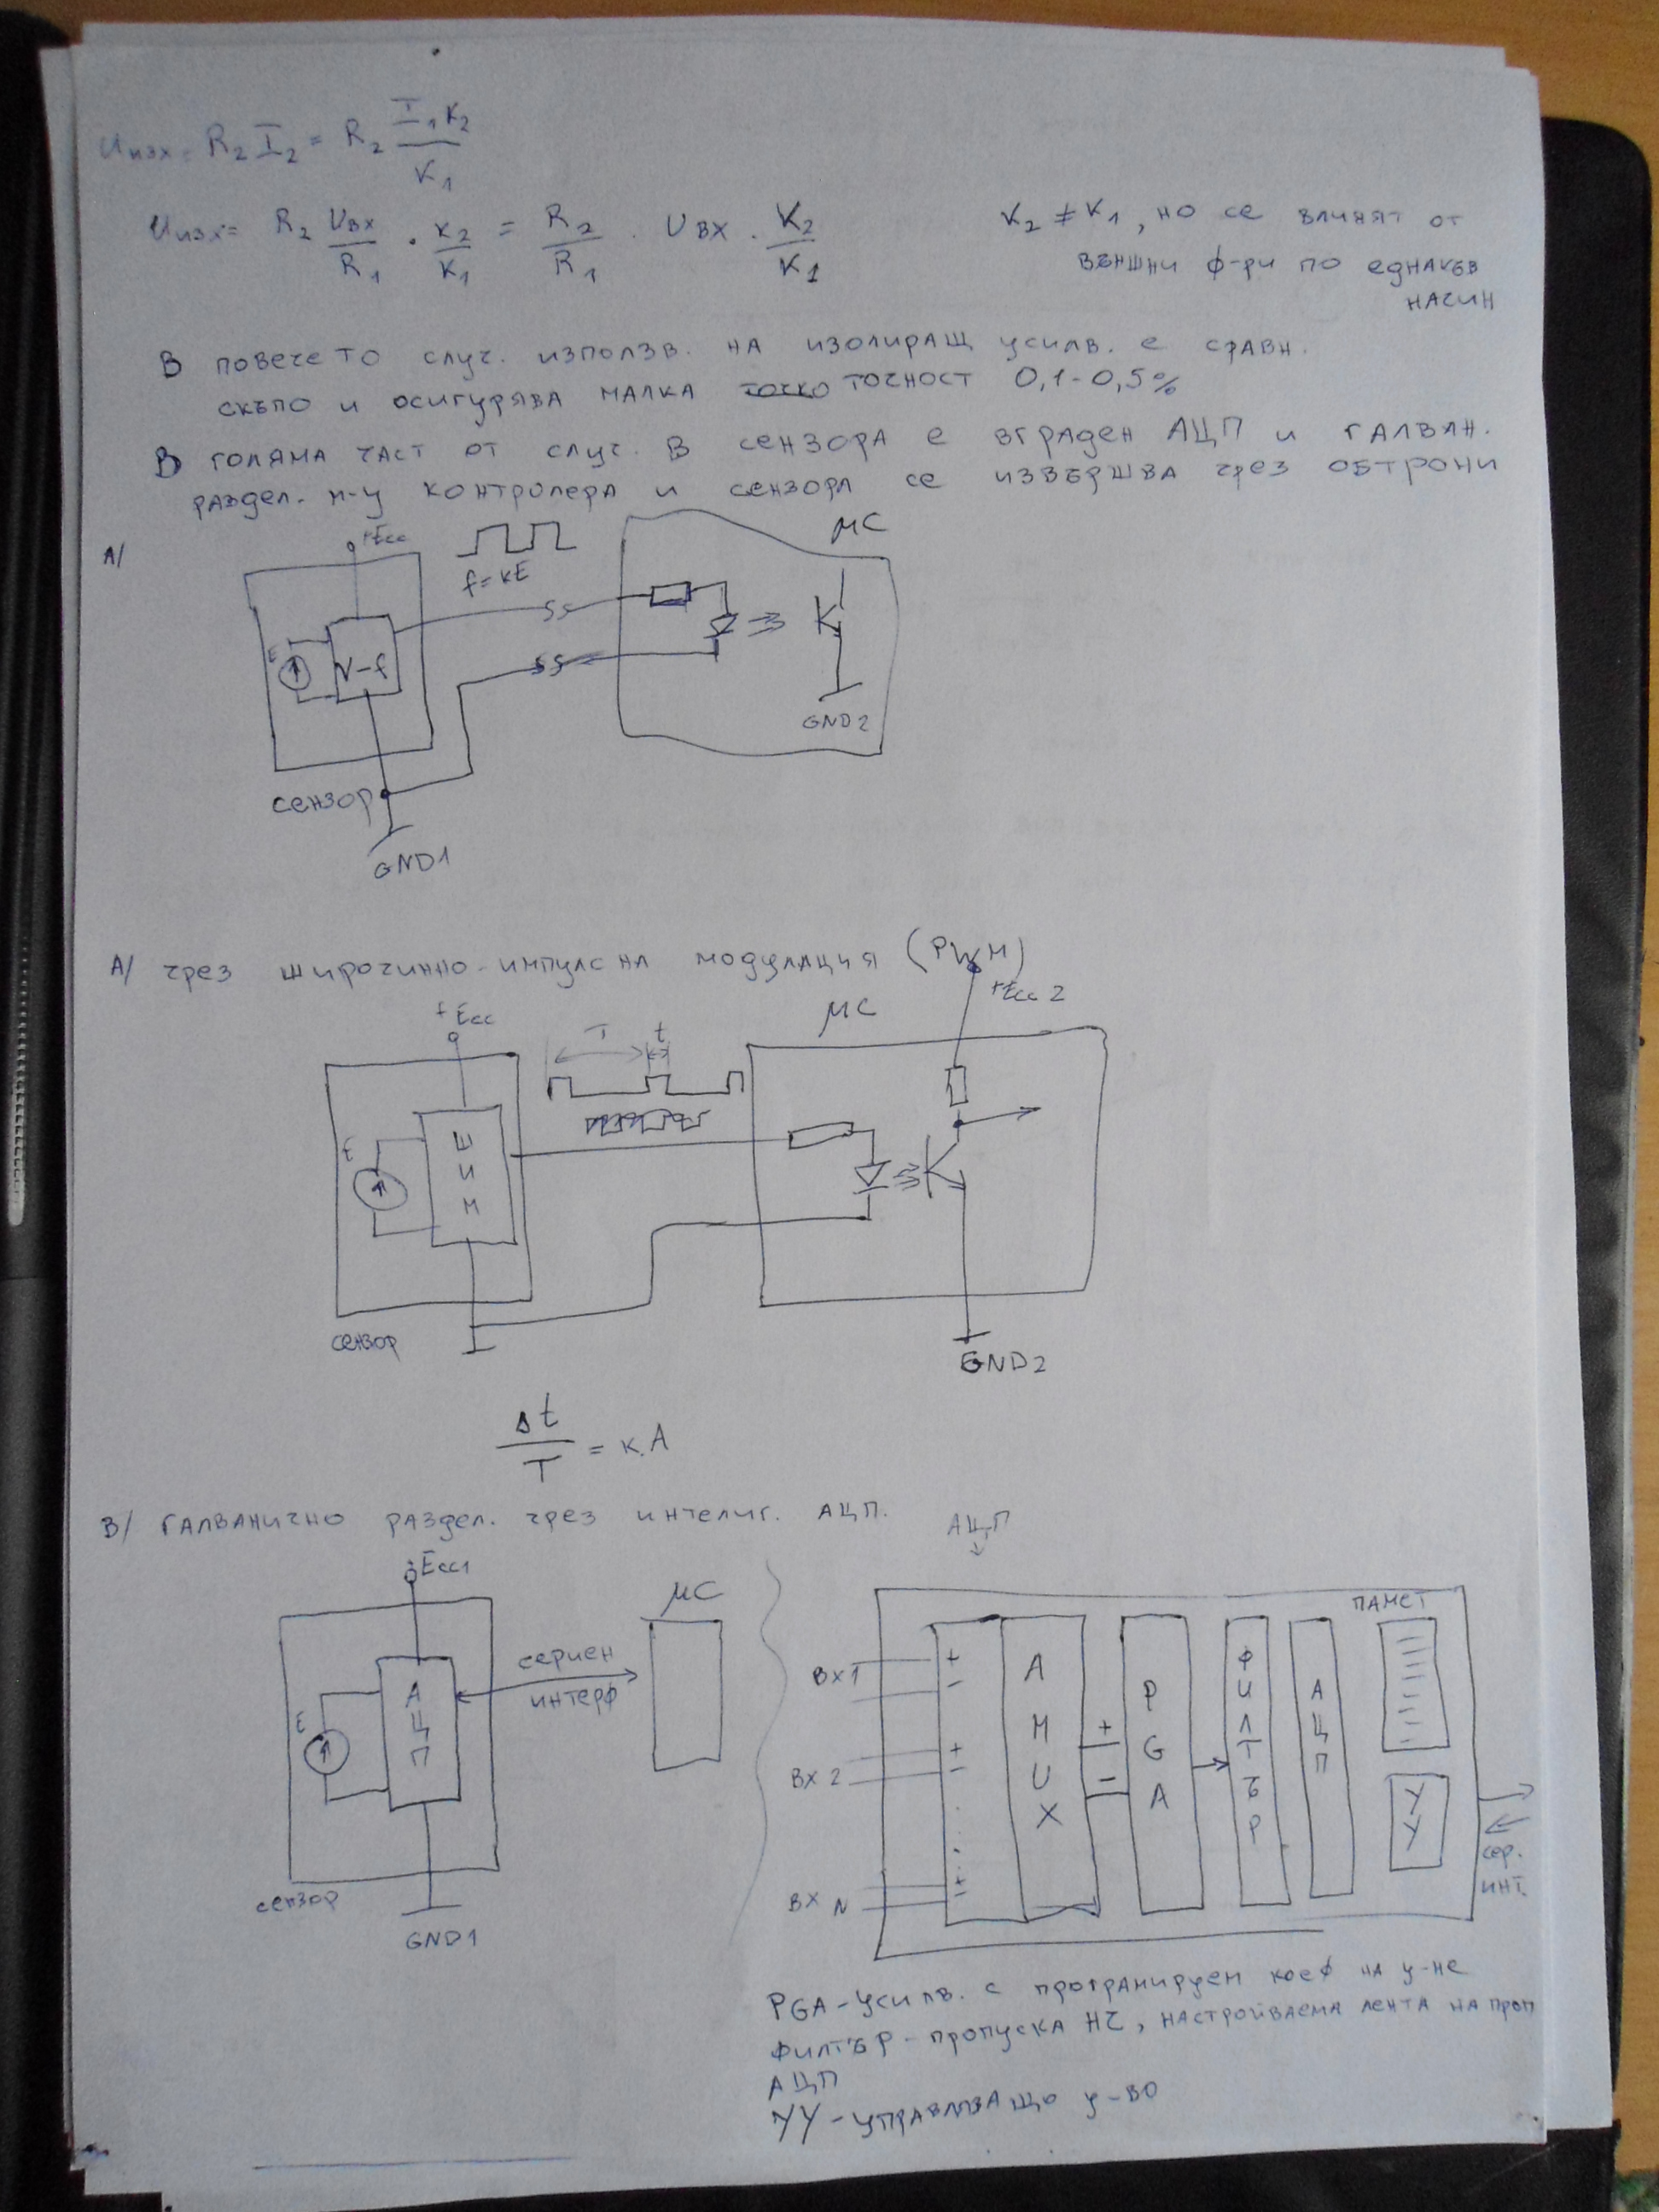 Uизх = R2 I2 = R2 I1 K2 / K1
Uизх = R2 Uвх / R1 . K2 / K1 = R2 / R1 . Uвх . K2 / K1
K2 ≠ K1, но се влияят от
външни ф-ри по еднакъв
начин
В повечето случ. използв. на изолиращ усилв. е сравн.
скъпо и осигурява малка точност 0,1-0,5%
В голяма част от случ. в сензора е вграден АЦП и галван.
раздел. м-у контролера и сензора се извършва чрез обтрони
А/
+Ecc
f=kE
μC
E
V-f
GND2
сензор
GND1
А/ чрез широчинно-импулсна модулация (PWM)
+Ecc
T
t
μC
+Ecc2
E
ШИМ
сензор
GND2
Δt / T = k.A
В/ галванично раздел. чрез интелиг. АЦП.
АЦП
+Ecc1
μC
сериен
интерф
E
АЦП
сензор
GND1
ПАМЕТ
Вх1
+
-
Вх2
+
-
Вх N
+
-
AMUX
+
-
PGA
ФИЛТЪР
АЦП
УУ
сер.
инт.
PGA-усилв. с програмируем коеф на у-не
Филтър-пропуска НЧ, настройваема лента на проп
АЦП
УУ-управляващо у-во